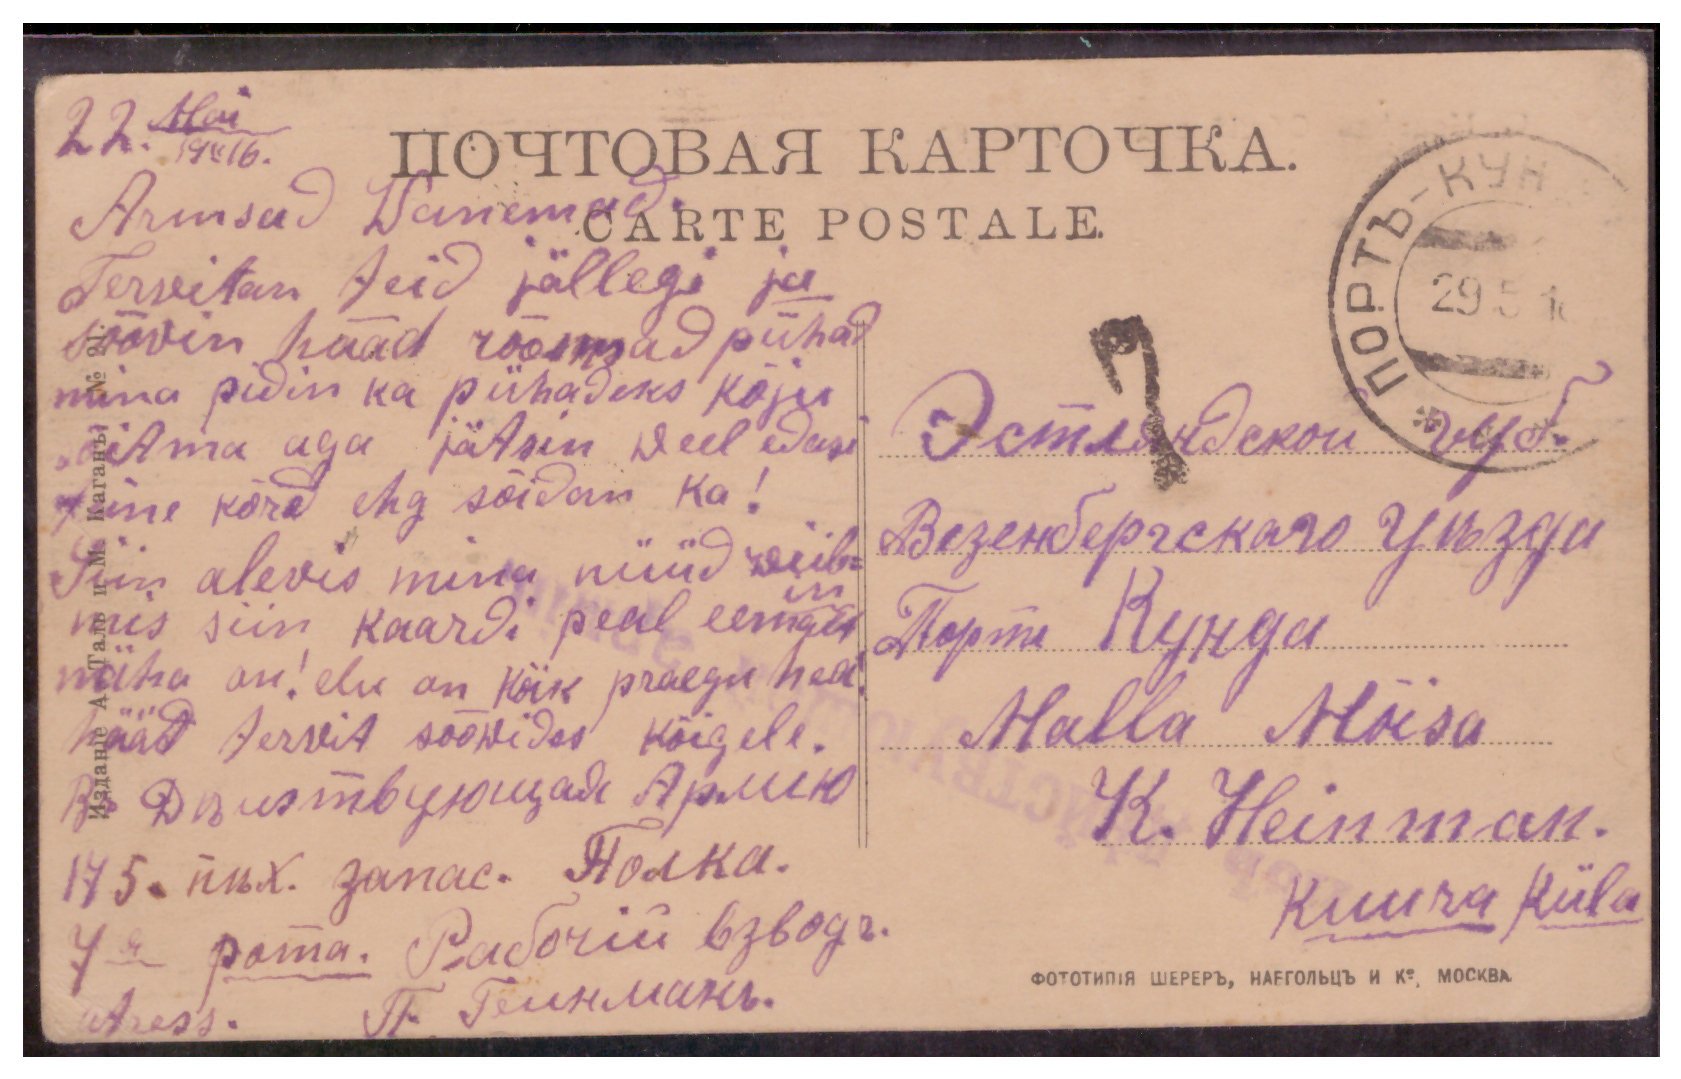 22. Mai 1916.
ПОЧТОВАЯ КАРТОЧКА.
CARTE POSTALE.
Armsad Wanemad.
Terwitan teid jällegi ja
söövin hääd rõõmsad pühad
mina pidin ka pühadeks kõju
sõitma aga jätsin weel edasi
teine kõrd ehg sõidan ka!
Siin alevis mina nüüd wiibin
mis siin kaardi peal
näha on! elu on kõik praegu hea!
hääd terwit söövides kõigele.
Въ Дѣйствующая Армію
175. пѣх. запас. Полка.
7я рота. Рабочій взводъ.
Atress. П. Гейнманъ.
Изданіе А. Таль и М. Каганъ. № 21.
ПОРТЪ-КУН
29 5 16
Эстляндской губ.
Везенбергскаго Уѣзда
Портъ Кунда
Malla Mõisa
K. Heinman.
Kuura Küla
ФОТОТИПІЯ ШЕРЕРЪ, НАБГОЛЬЦЪ И Кº, МОСКВА.